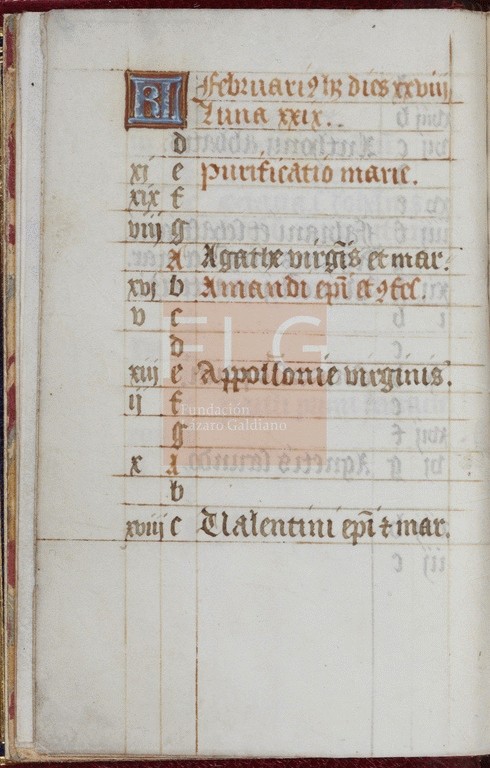 KL Februariꝰ hꝫ dies xxviij
Luna xxix.
d
xj e Purificatio marie.
xix f
viij g
A Agathe virgīs et mar.
xvj b Amandi ep̄i et ꝯfes.
v c
d
xiij e Appollonie virginis.
ij f
g
x A
b
xviij c Valentini ep̄i ⁊ mar.
FLG
Fundación
Lázaro Galdiano